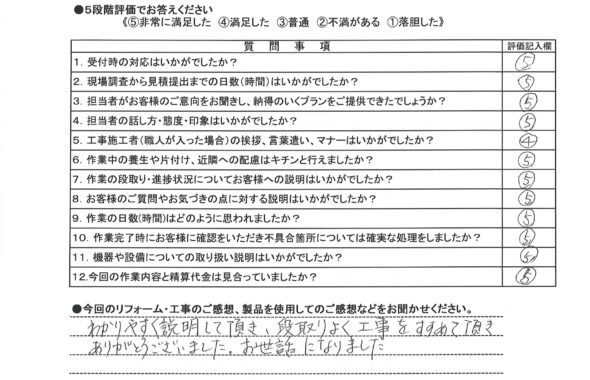 ●５段階評価でお答えください
《⑤非常に満足した ④満足した ③普通 ②不満がある ①落胆した》
質 問 事 項 評価記入欄
1. 受付時の対応はいかがでしたか？ ⑤
2. 現場調査から見積提出までの日数(時間)はいかがでしたか？ ⑤
3. 担当者がお客様のご意向をお聞きし、納得のいくプランをご提供できたでしょうか？ ⑤
4. 担当者の話し方・態度・印象はいかがでしたか？ ⑤
5. 工事施工者(職人が入った場合)の挨拶、言葉遣い、マナーはいかがでしたか？ ④
6. 作業中の養生や片付け、近隣への配慮はキチンと行えましたか？ ⑤
7. 作業の段取り・進捗状況についてお客様への説明はいかがでしたか？ ⑤
8. お客様のご質問やお気づきの点に対する説明はいかがでしたか？ ⑤
9. 作業の日数(時間)はどのように思われましたか？ ⑤
10. 作業完了時にお客様に確認をいただき不具合箇所については確実な処理をしましたか？ ⑤
11. 機器や設備についての取り扱い説明はいかがでしたか？ ⑤
12.今回の作業内容と精算代金は見合っていましたか？ ⑤
●今回のリフォーム・工事のご感想、製品を使用してのご感想などをお聞かせください。
わかりやすく説明して頂き、段取りよく工事をすすめて頂き
ありがとうございました。お世話になりました